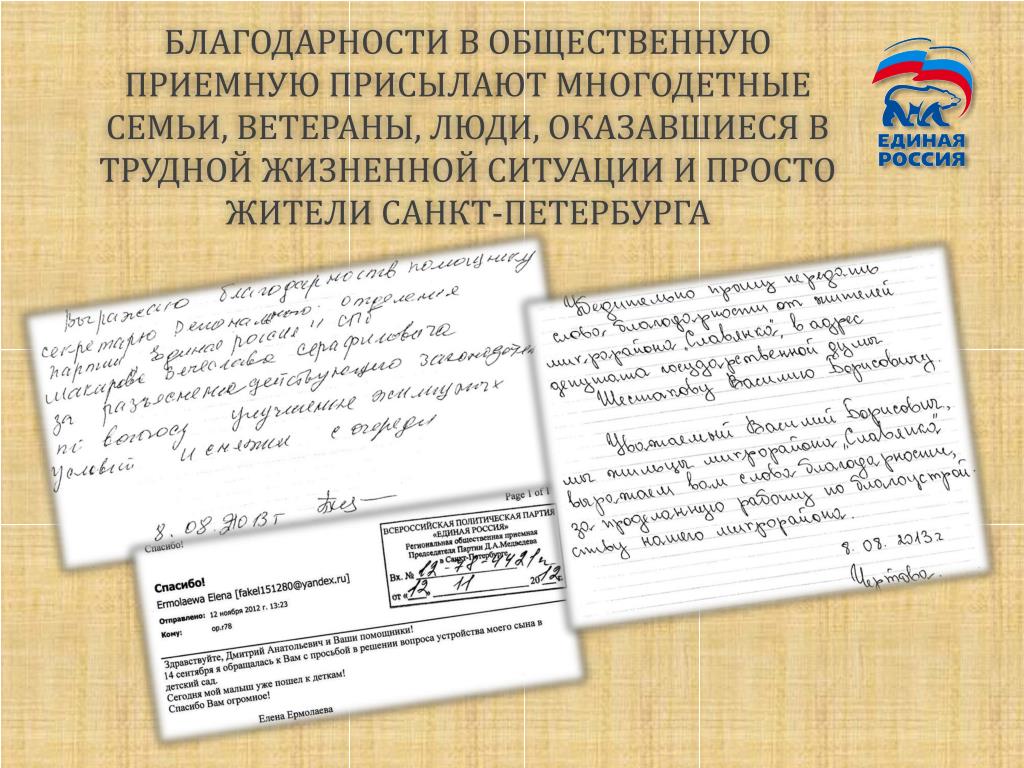 БЛАГОДАРНОСТИ В ОБЩЕСТВЕННУЮ
ПРИЕМНУЮ ПРИСЫЛАЮТ МНОГОДЕТНЫЕ
СЕМЬИ, ВЕТЕРАНЫ, ЛЮДИ, ОКАЗАВШИЕСЯ В
ТРУДНОЙ ЖИЗНЕННОЙ СИТУАЦИИ И ПРОСТО
ЖИТЕЛИ САНКТ-ПЕТЕРБУРГА
ЕДИНАЯ
РОССИЯ
Выражаю благодарность помощнику
секретарю Регионального отделения
партии "Единая Россия" СПб
Макарова Вячеслава Серафимовича
за разъяснение действующего законодател
по вопросу улучшение жилищных
условий и снятии с очереди
8.08.2013 г
Убедительно прошу передать
слова благодарности от жителей
микрорайона „Славянка", в адрес
депутата государственной думы
Шестакову Василию Борисовичу.
Уважаемый Василий Борисович,
мы жильцы микрорайона „Славянка"
выражаем вам слова благодарности,
за проделанную работу по благоустрой-
ству нашего микрорайона.
8.08.2013 г
Чертова.
Page 1 of 1
Спасибо!
ВСЕРОССИЙСКАЯ ПОЛИТИЧЕСКАЯ ПАРТИЯ
«ЕДИНАЯ РОССИЯ»
Региональная общественная приемная
Председателя Партии Д.А.Медведева
в Санкт-Петербурге
Вх. №
от «12» 11 2012 г.
Спасибо!
Ermolaewa Elena [fakel151280@yandex.ru]
Отправлено: 12 ноября 2012 г. 13:23
Кому: op.r78
Здравствуйте, Дмитрий Анатольевич и Ваши помощники!
14 сентября я обращалась к Вам с просьбой в решении вопроса устройства моего сына в
детский сад.
Сегодня мой малыш уже пошел к деткам!
Спасибо Вам огромное!
Елена Ермолаева